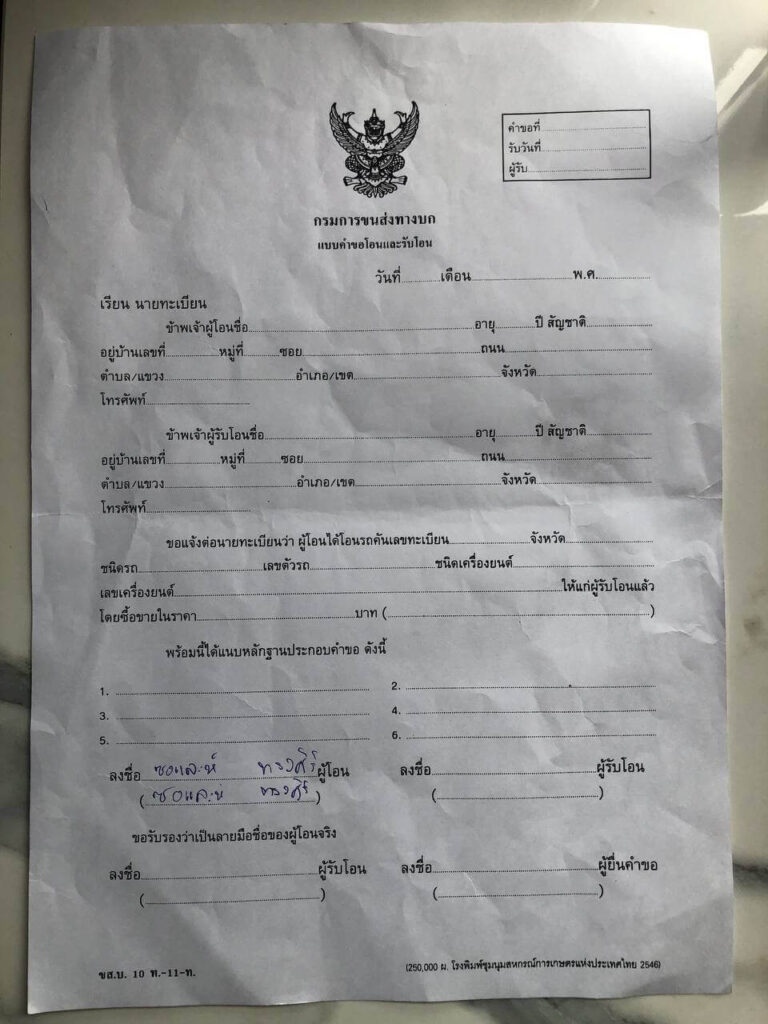 คำขอที่
รับวันที่
ผู้รับ
กรมการขนส่งทางบก
แบบคำขอโอนและรับโอน
วันที่ เดือน พ.ศ.
เรียน นายทะเบียน
ข้าพเจ้าผู้โอนชื่อ อายุ ปี สัญชาติ
อยู่บ้านเลขที่ หมู่ที่ ซอย ถนน
ตำบล/แขวง อำเภอ/เขต จังหวัด
โทรศัพท์
ข้าพเจ้าผู้รับโอนชื่อ อายุ ปี สัญชาติ
อยู่บ้านเลขที่ หมู่ที่ ซอย ถนน
ตำบล/แขวง อำเภอ/เขต จังหวัด
โทรศัพท์
ขอแจ้งต่อนายทะเบียนว่า ผู้โอนได้โอนรถคันเลขทะเบียน จังหวัด
ชนิดรถ เลขตัวรถ ชนิดเครื่องยนต์
เลขเครื่องยนต์ ให้แก่ผู้รับโอนแล้ว
โดยซื้อขายในราคา บาท ( )
พร้อมนี้ได้แนบหลักฐานประกอบคำขอ ดังนี้
1. 2.
3. 4.
5. 6.
ลงชื่อ ผู้โอน ลงชื่อ ผู้รับโอน
( ) ( )
ขอรับรองว่าเป็นลายมือชื่อของผู้โอนจริง
ลงชื่อ ผู้รับโอน ลงชื่อ ผู้ยื่นคำขอ
( ) ( )
ขส.บ. 10 ท.-11-ท. (250,000 ผ. โรงพิมพ์ชุมนุมสหกรณ์การเกษตรแห่งประเทศไทย 2546)